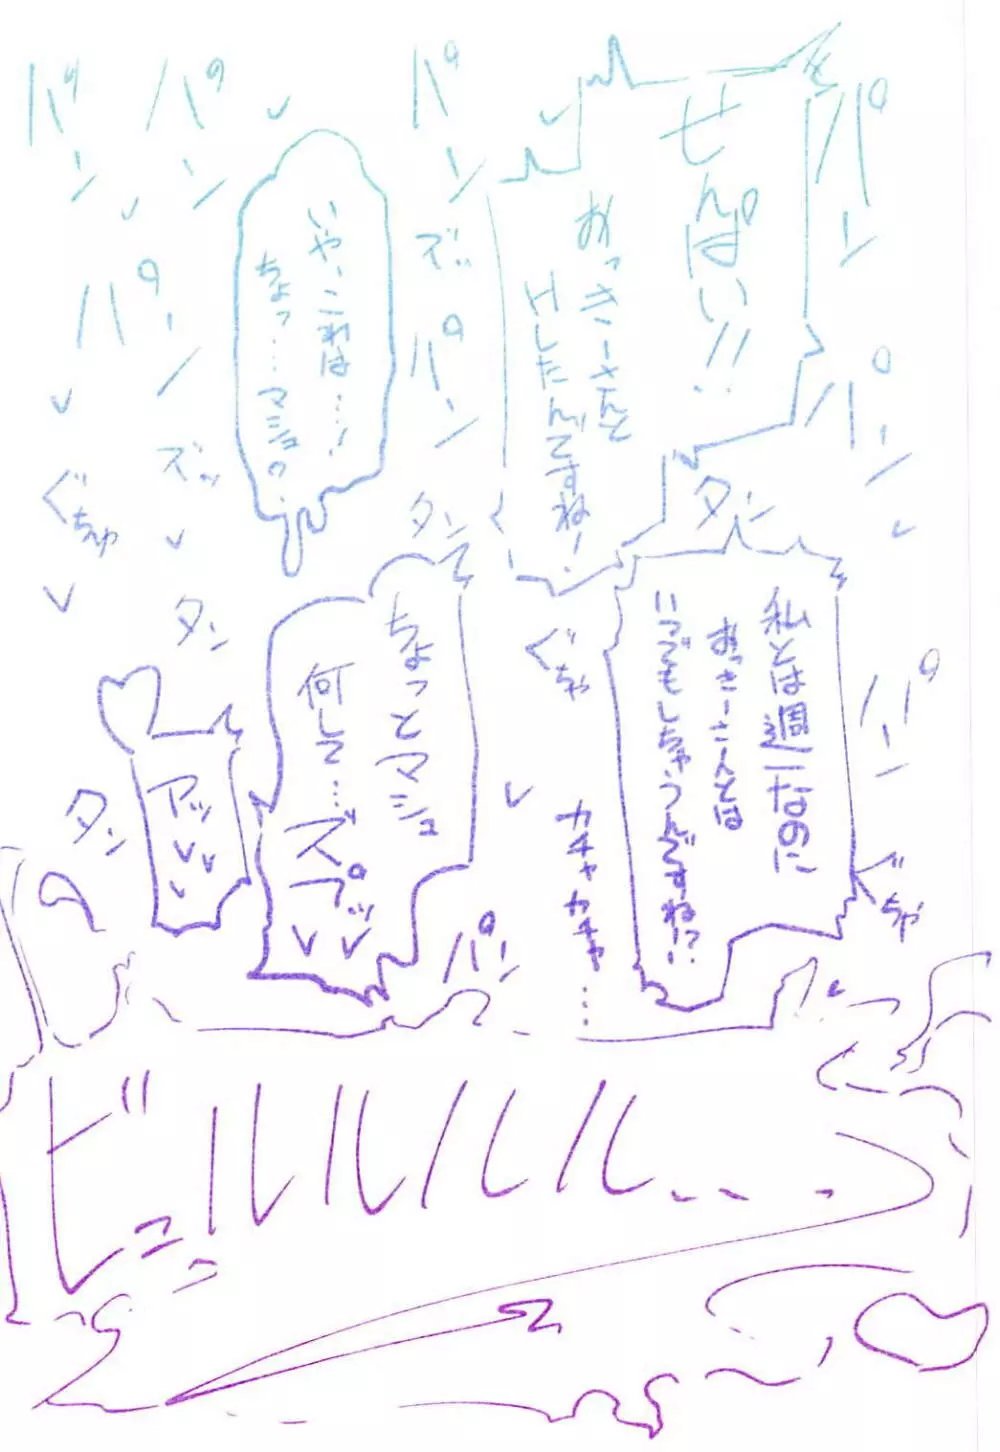 パン
せんぱい!!
おっきーさんと
Hしたんですね!
パン
パン
ズッ
パン
タン
いや、これは…!
ちょっ…マシュ?
パン
パン
パン
ズッ
ぐちゅ
タン
私とは週一なのに
おっきーさんとは
いつでもしちゃうんですね!?
タン
パン
ぐちゃ
ぐちゃ
カチャカチャ…
ちょっとマシュ
何して…
ズプッ
パン
アッ
タン
ビュルルルル…